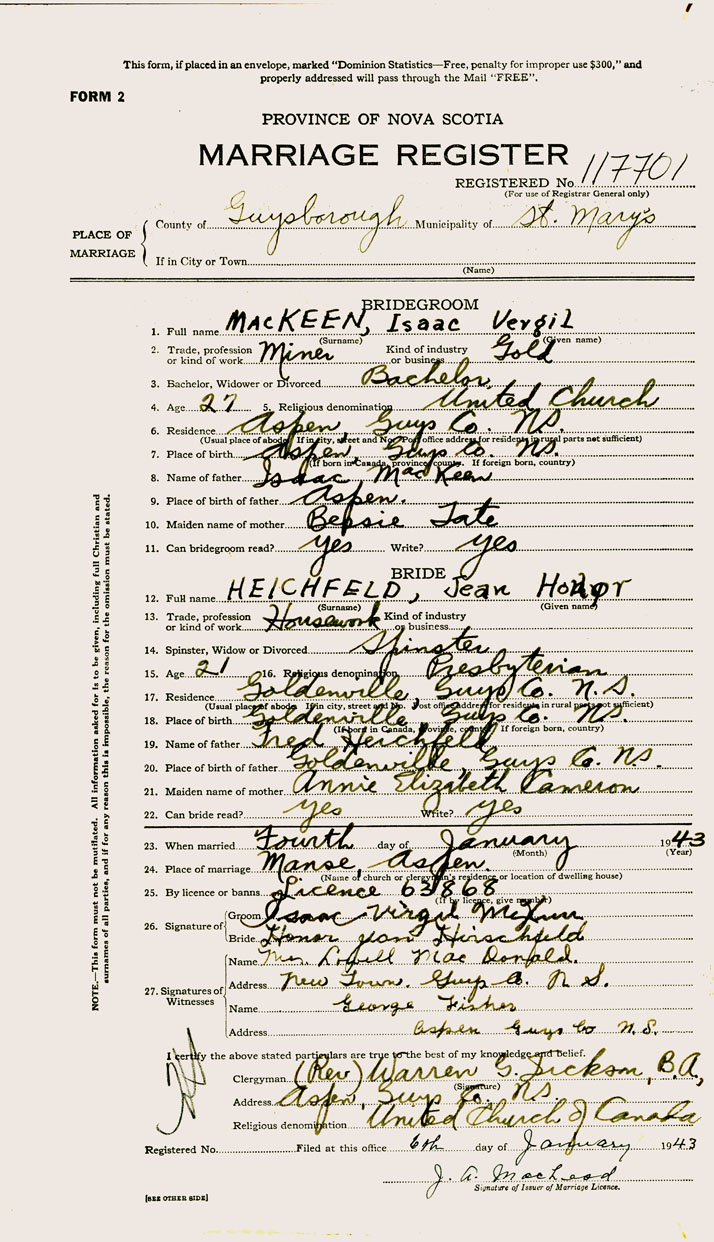 This form, if placed in an envelope, marked "Dominion Statistics—Free, penalty for improper use $300," and
properly addressed will pass through the Mail "FREE".
FORM 2
PROVINCE OF NOVA SCOTIA
MARRIAGE REGISTER
REGISTERED No. 117701
(For use of Registrar General only)
PLACE OF MARRIAGE
County of Guysborough Municipality of St. Mary's
If in City or Town
(Name)
BRIDEGROOM
1. Full name MacKEEN, Isaac Vergil
(Surname) (Given name)
2. Trade, profession or kind of work Miner Kind of industry or business Gold
3. Bachelor, Widower or Divorced Bachelor
4. Age 27 5. Religious denomination United Church
6. Residence Aspen, Guys Co. N.S.
(Usual place of abode. If in city, street and No. Post office address for residents in rural parts not sufficient)
7. Place of birth Aspen, Guys Co. N.S.
(If born in Canada, province, county. If foreign born, country)
8. Name of father Isaac MacKeen
9. Place of birth of father Aspen.
10. Maiden name of mother Bessie Tate
11. Can bridegroom read? yes Write? yes
BRIDE
12. Full name HEICHFELD, Jean Honor
(Surname) (Given name)
13. Trade, profession or kind of work Housework Kind of industry or business
14. Spinster, Widow or Divorced Spinster
15. Age 21 16. Religious denomination Presbyterian
17. Residence Goldenville, Guys Co. N.S.
(Usual place of abode. If in city, street and No. Post office Address for residents in rural parts not sufficient)
18. Place of birth Goldenville, Guys Co. N.S.
(If born in Canada, Province, county. If foreign born, country)
19. Name of father Fred Heichfeld
20. Place of birth of father Goldenville, Guys Co. N.S.
21. Maiden name of mother Annie Elizabeth Cameron
22. Can bride read? yes Write? yes
23. When married Fourth day of January 1943
(Month) (Year)
24. Place of marriage Manse, Aspen.
(Name of church or clergyman's residence or location of dwelling house)
25. By licence or banns Licence 63868
(If by licence, give number)
26. Signature of Groom Isaac Virgil McKeen
Bride Honor Jean Hirschfeld
27. Signatures of Witnesses
Name Mrs. Lowell MacDonald.
Address New Town. Guys Co. N.S.
Name George Fisher
Address Aspen Guys Co N.S.
I certify the above stated particulars are true to the best of my knowledge and belief.
Clergyman (Rev) Warren G. Dickson, B.A,
(Signature)
Address Aspen, Guys Co. N.S.
Religious denomination United Church of Canada
Registered No. Filed at this office 6th day of January 1943
J. A. MacLeod
Signature of Issuer of Marriage Licence.
[SEE OTHER SIDE]
NOTE.—This form must not be mutilated. All information asked for is to be given, including full Christian and
surnames of all parties, and if for any reason this is impossible, the reason for the omission must be stated.